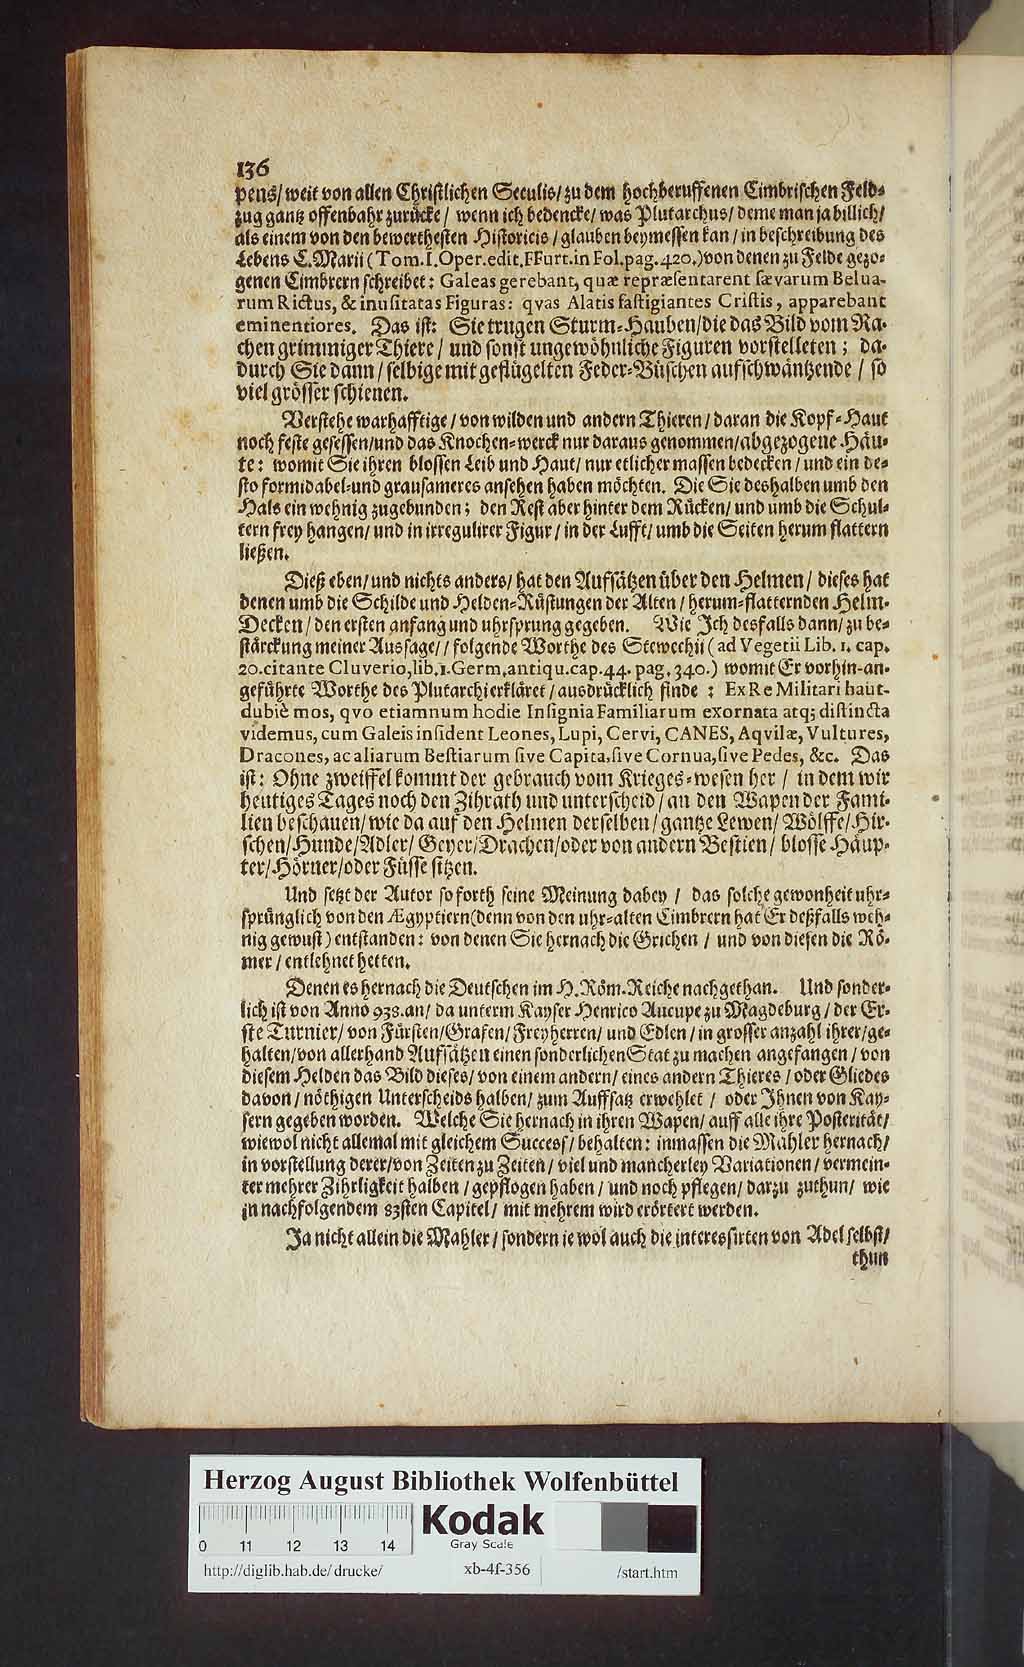 136
pens/ weit von allen Christlichen Seculis/ zu dem hochberuffenen Cimbrischen Feld-
zug gantz offenbahr zurücke/ wenn ich bedencke/ was Plutarchus/ deme man ja billich/
als einem von den bewerthesten Historicis/ glauben beymessen kan/ in beschreibung des
Lebens C. Marii (Tom. I. Oper. edit. FFurt. in Fol. pag. 420.) von denen zu Felde gezo-
genen Cimbrern schreibet: Galeas gerebant, quæ repræsentarent sævarum Belua-
rum Rictus, & inusitatas Figuras: qvas Alatis fastigiantes Cristis, apparebant
eminentiores. Das ist: Sie trugen Sturm-Hauben/ die das Bild vom Ra-
chen grimmiger Thiere/ und sonst ungewöhnliche Figuren vorstelleten; da-
durch Sie dann/ selbige mit geflügelten Feder-Büschen aufschwäntzende/ so
viel grösser schienen.
Verstehe warhafftige/ von wilden und andern Thieren/ daran die Kopf-Haut
noch feste gesessen/ und das Knochen-werck nur daraus genommen/ abgezogene Häu-
te: womit Sie ihren blossen Leib und Haut/ nur etlicher massen bedecken/ und ein de-
sto formidabel- und grausameres ansehen haben möchten. Die Sie deshalben umb den
Hals ein wehnig zugebunden; den Rest aber hinter dem Rücken/ und umb die Schul-
tern frey hangen/ und in irregulirer Figur/ in der Lufft/ umb die Seiten herum flattern
ließen.
Dieß eben/ und nichts anders/ hat den Aufsätzen über den Helmen/ dieses hat
denen umb die Schilde und Helden-Rüstungen der Alten/ herum-flatternden Helm-
Decken/ den ersten anfang und uhrsprung gegeben. Wie Ich desfalls dann/ zu be-
stärckung meiner Aussage// folgende Worthe des Stewechii (ad Vegetii Lib. 1. cap.
20. citante Cluverio, lib. 1. Germ, antiqu. cap. 44. pag. 340.) womit Er vorhin-an-
geführte Worthe des Plutarchi erkläret/ ausdrücklich finde: Ex Re Militari haut-
dubiè mos, qvo etiamnum hodie Insignia Familiarum exornata atq; distincta
videmus, cum Galeis insident Leones, Lupi, Cervi, CANES, Aqvilæ, Vultures,
Dracones, ac aliarum Bestiarum sive Capita, sive Cornua, sive Pedes, &c. Das
ist: Ohne zweiffel kommt der gebrauch vom Krieges-wesen her/ in dem wir
heutiges Tages noch den Zihrath und unterscheid/ an den Wapen der Fami-
lien beschauen/ wie da auf den Helmen derselben/ gantze Lewen/ Wölffe/ Hir-
schen/ Hunde/ Adler/ Geyer/ Drachen/ oder von andern Bestien/ blosse Häup-
ter/ Hörner/ oder Füsse sitzen.
Und setzt der Autor so forth seine Meinung dabey/ das solche gewonheit uhr-
sprünglich von den Ægyptiern (denn von den uhr-alten Cimbrern hat Er deßfalls weh-
nig gewust) entstanden: von denen Sie hernach die Grichen/ und von diesen die Rö-
mer/ entlehnet hetten.
Denen es hernach die Deutschen im H. Röm. Reiche nachgethan. Und sonder-
lich ist von Anno 938. an/ da unterm Kayser Henrico Aucupe zu Magdeburg/ der Er-
ste Turnier/ von Fürsten/ Grafen/ Freyherren/ und Edlen/ in grosser anzahl ihrer/ ge-
halten/ von allerhand Aufsätzen einen sonderlichen Stat zu machen angefangen/ von
diesem Helden das Bild dieses/ von einem andern/ eines andern Thieres/ oder Gliedes
davon/ nöthigen Unterscheids halben/ zum Auffsatz erwehlet/ oder Ihnen von Kay-
sern gegeben worden. Welche Sie hernach in ihren Wapen/ auff alle ihre Posterität/
wiewol nicht allemal mit gleichem Success/ behalten: inmassen die Mahler hernach/
in vorstellung derer/ von Zeiten zu Zeiten/ viel und mancherley Variationen/ vermein-
ter mehrer Zihrligkeit halben/ gepflogen haben/ und noch pflegen/ darzu zuthun/ wie
in nachfolgendem 83sten Capitel/ mit mehrem wird erörtert werden.
Ja nicht allein die Mahler/ sondern je wol auch die interessirten von Adel selbst/
thun
Herzog August Bibliothek Wolfenbüttel
Kodak
Gray Scale
0 11 12 13 14
http://diglib.hab.de/drucke/ xb-4f-356 /start.htm